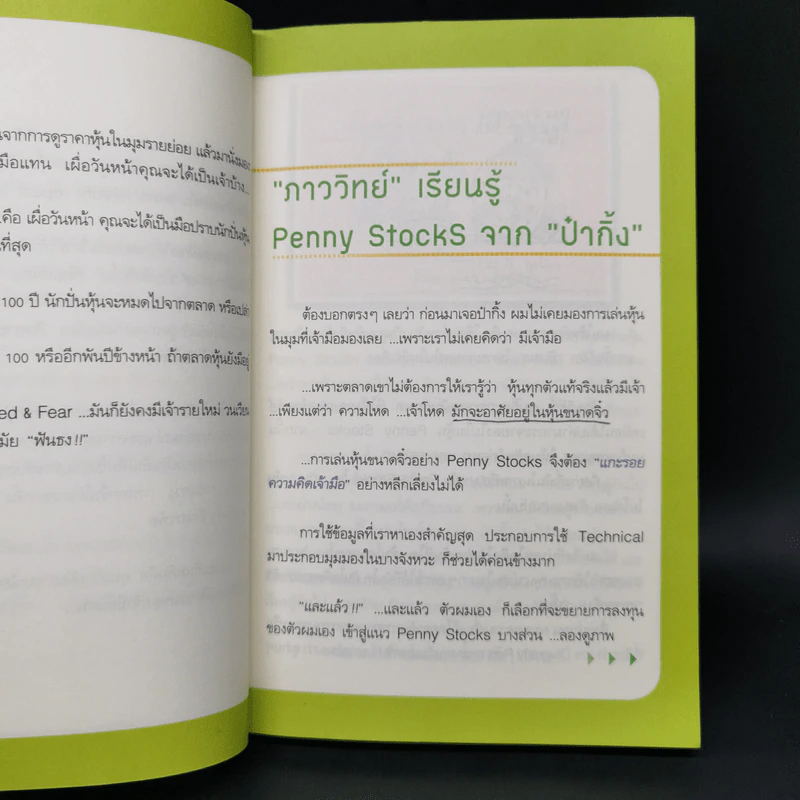 จากการดูราคาหุ้นในมุมรายย่อย แล้วมานั่งมอง
มือแทน เผื่อวันหน้าคุณจะได้เป็นเจ้าบ้าง...
คือ เผื่อวันหน้า คุณจะได้เป็นมือปราบนักปั่นหุ้น
ที่สุด
100 ปี นักปั่นหุ้นจะหมดไปจากตลาด หรือเปล่า
100 หรืออีกพันปีข้างหน้า ถ้าตลาดหุ้นยังมีอยู่
ed & Fear ...มันก็ยังคงมีเจ้ารายใหม่ วนเวียน
มัย "ฟันธง !!"
"ภาววิทย์" เรียนรู้
Penny StockS จาก "ป๋ากิ้ง"
ต้องบอกตรงๆ เลยว่า ก่อนมาเจอป๋ากิ้ง ผมไม่เคยมองการเล่นหุ้น
ในมุมที่เจ้ามือมองเลย ...เพราะเราไม่เคยคิดว่า มีเจ้ามือ
...เพราะตลาดเขาไม่ต้องการให้เรารู้ว่า หุ้นทุกตัวแท้จริงแล้วมีเจ้า
...เพียงแต่ว่า ความโหด ...เจ้าโหด มักจะอาศัยอยู่ในหุ้นขนาดจิ๋ว
...การเล่นหุ้นขนาดจิ๋วอย่าง Penny Stocks จึงต้อง "แกะรอย
ความคิดเจ้ามือ" อย่างหลีกเลี่ยงไม่ได้
การใช้ข้อมูลที่เราหาเองสำคัญสุด ประกอบการใช้ Technical
มาประกอบมุมมองในบางจังหวะ ก็ช่วยได้ค่อนข้างมาก
"และแล้ว !!" ...และแล้ว ตัวผมเอง ก็เลือกที่จะขยายการลงทุน
ของตัวผมเอง เข้าสู่แนว Penny Stocks บางส่วน ...ลองดูภาพ